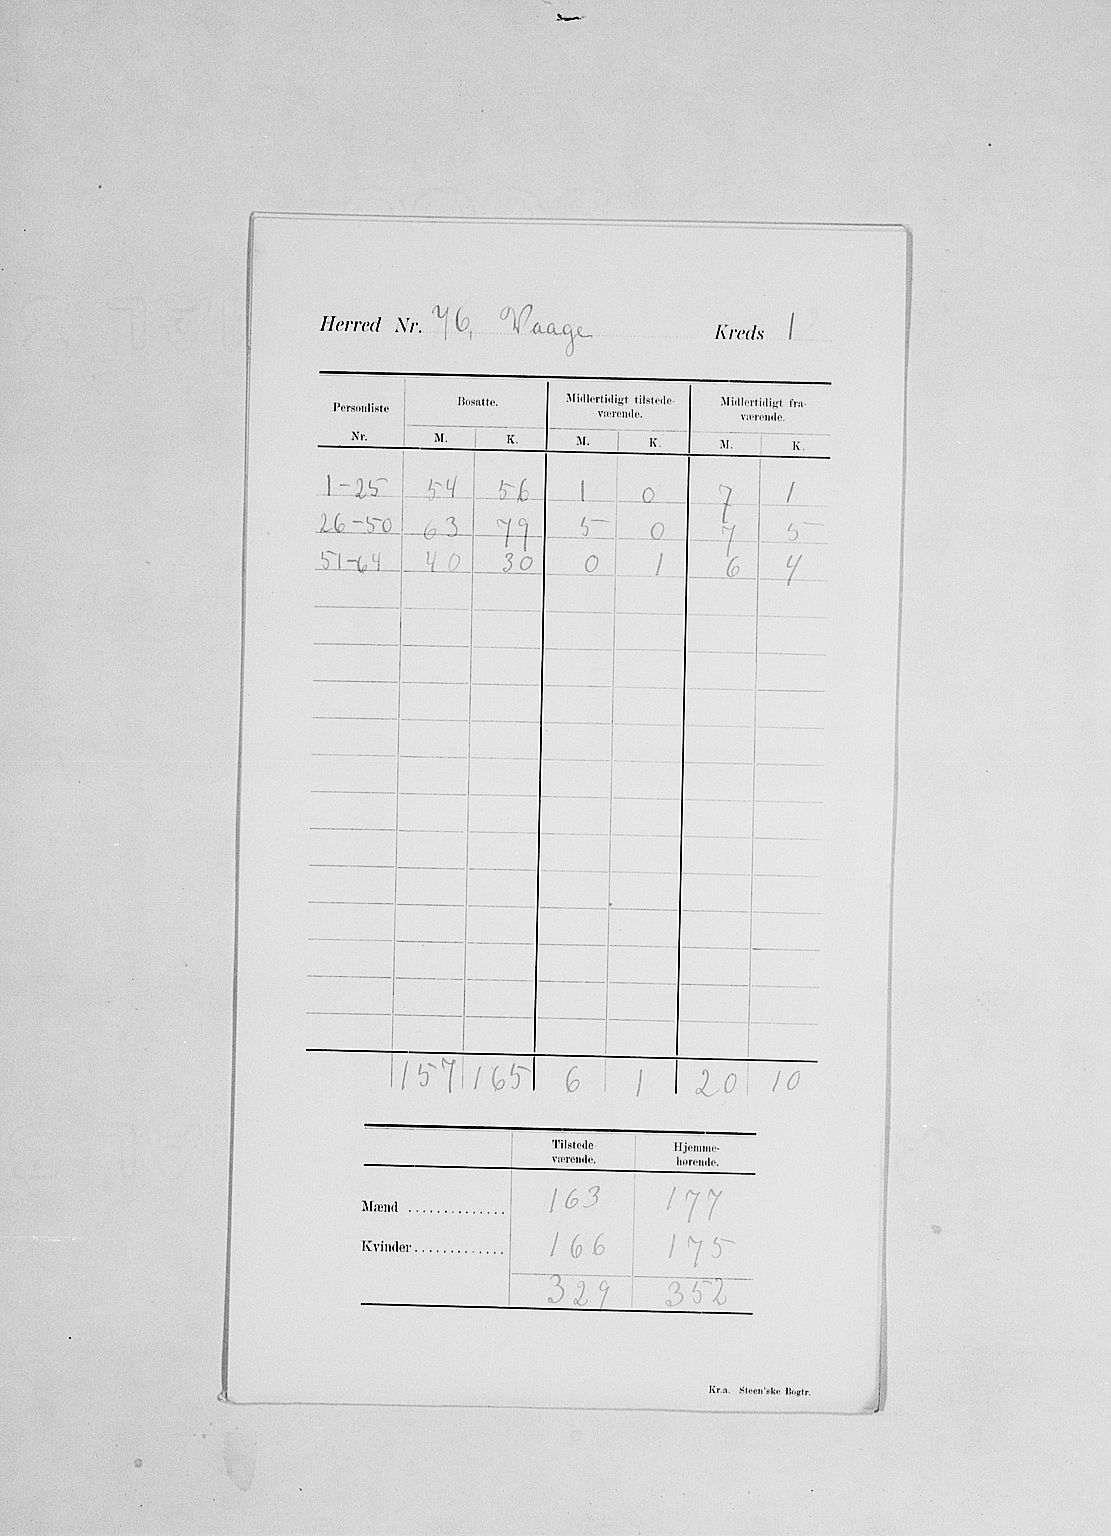 Herred Nr. 76, Vaage Kreds 1
Personliste Nr. Bosatte. Midlertidigt tilstede-værende. Midlertidigt fra-værende.
M. K. M. K. M. K.
1-25 54 56 1 0 7 1
26-50 63 79 5 0 7 5
51-64 40 30 0 1 6 4
157 165 6 1 20 10
Tilstede værende. Hjemme-hørende.
Mænd .............. 163 177
Kvinder ............. 166 175
329 352
Kr.a. Steen'ske Bogtr.